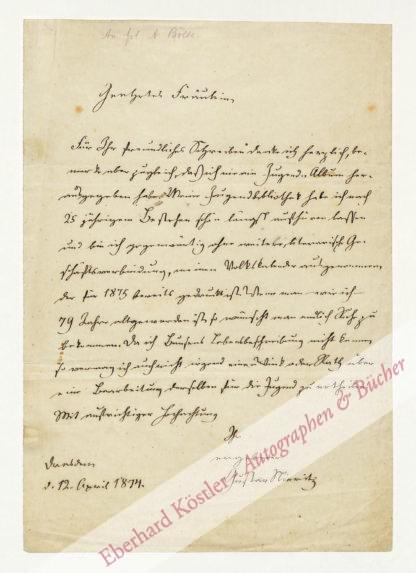 An Frl. A Bölte.
Geehrtes Fräulein,
Für Ihr freundliches Schreiben danke ich herzlich, be-
merke aber zugleich, daß ich nie ein Jugend-Album her-
ausgegeben habe. Meine Jugendbibliothek hat ich nach
25 jährigem Bestehen schon längst aufhören lassen
und bin ich gegenwärtig ohne weitere literarische Ge-
schäftsverbindung, meinen Volkskalender ausgenommen,
der für 1875 bereits gedruckt ist. Wenn man wie ich
79 Jahre alt geworden ist, so wünscht man endlich Ruhe zu
bekommen. Da ich Lebensbeschreibung nicht kenne,
so vermag ich auch nicht irgend einen Wink oder Rath über
eine Bearbeitung derselben für die Jugend zu ertheilen.
Mit aufrichtiger Hochachtung
Ihr
Gustav Nieritz
Dresden
d. 12. April 1874.
Eberhard Köstler Autographen & Bücher